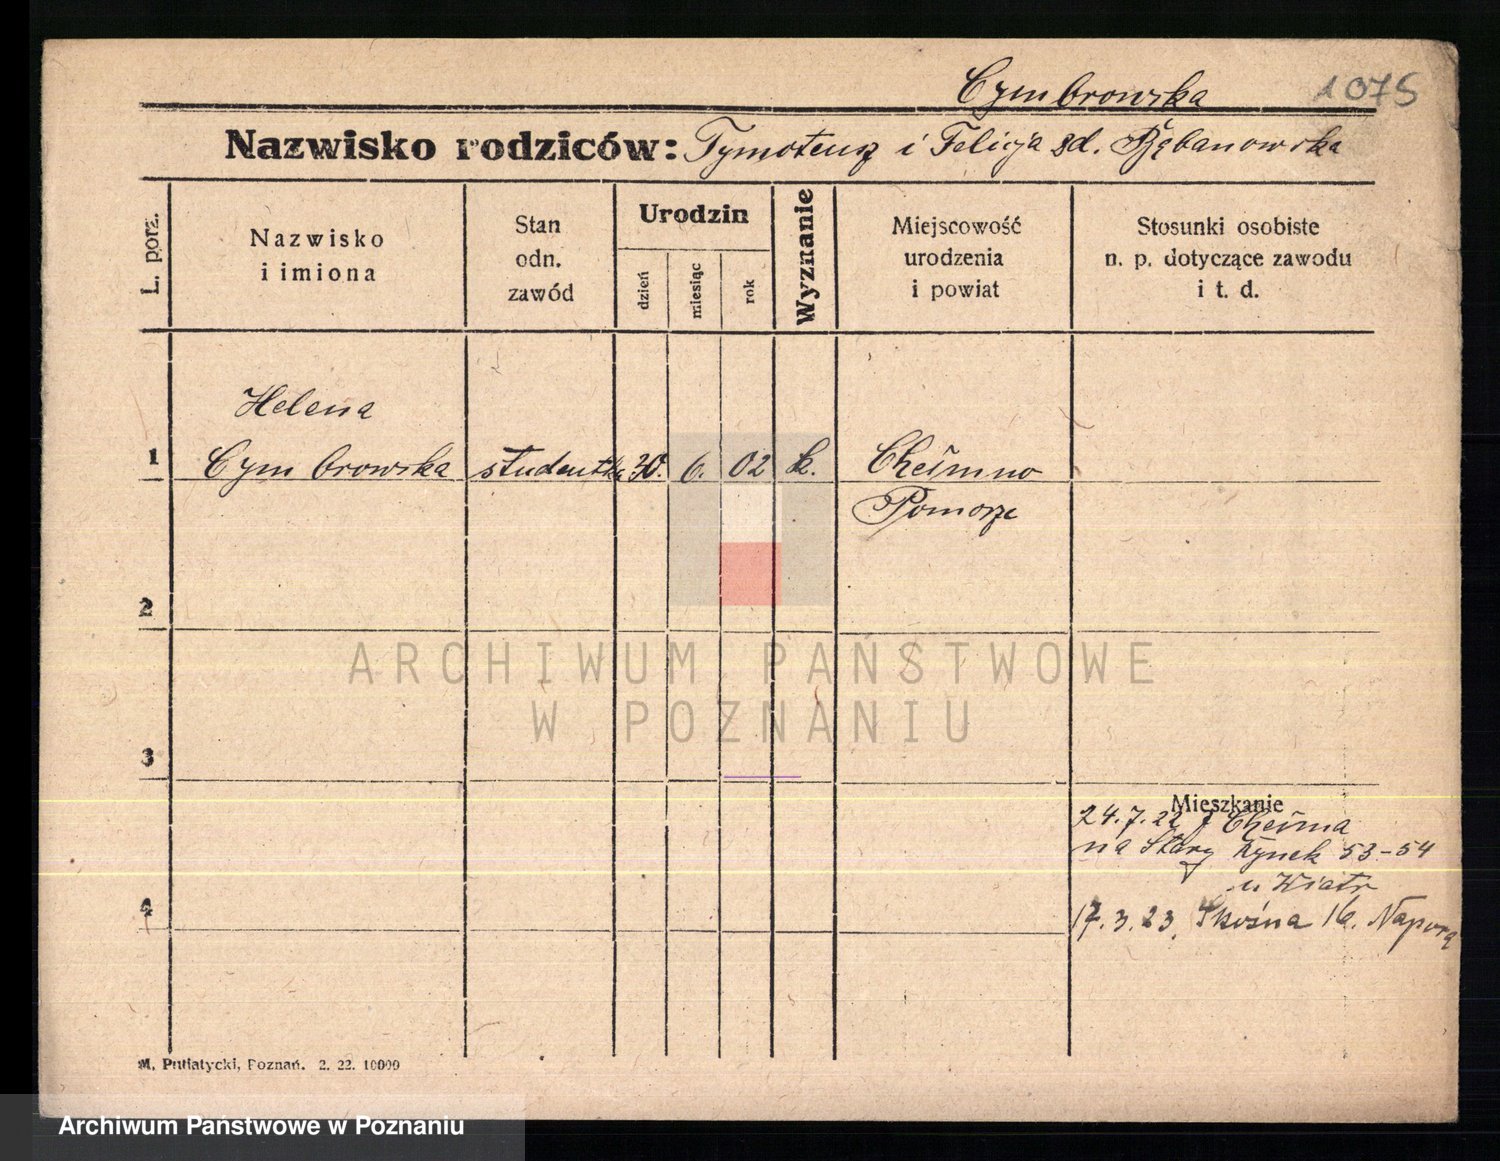 Cymbrowska 1075
Nazwisko rodziców: Tymoteusz i Felicja sd. Rębanowska
L. porz.
Nazwisko
i imiona
Stan
odn.
zawód
Urodzin
dzień
miesiąc
rok
Wyznanie
Miejscowość
urodzenia
i powiat
Stosunki osobiste
n. p. dotyczące zawodu
i t. d.
Helena
1 Cymbrowska studentka 30. 6. 02 k. Chełmno
Pomorze
2
ARCHIWUM PAŃSTWOWE
W POZNANIU
3
Mieszkanie
24.7.22 z Chełma
na Stary Rynek 53-54
u. Wiatr
4
17.3.23. Skośna 16. Napora
M. Putiatycki, Poznań. 2. 22. 10000
Archiwum Państwowe w Poznaniu